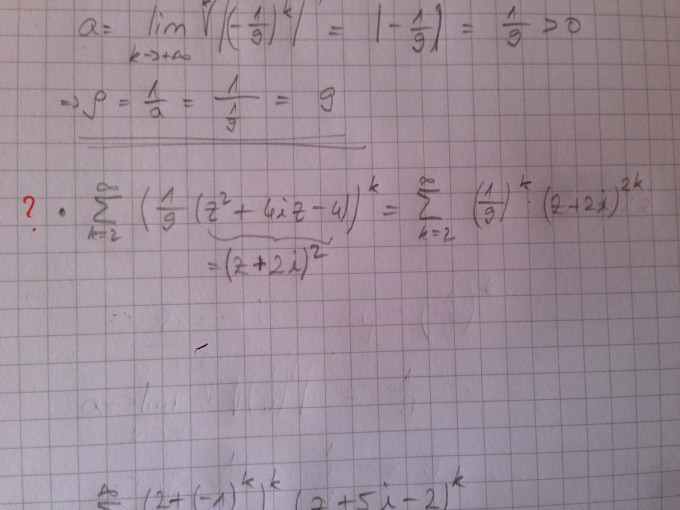 a = lim k→+∞ ᵏ√|(-1/9)^k| = |-1/9| = 1/9 > 0
⇒ ρ = 1/a = 1/(1/9) = 9
? • ∑_{k=2}^{∞} (1/9 (z² + 4iz - 4))^k = ∑_{k=2}^{∞} (1/9)^k · (z+2i)^{2k}
= (z+2i)²
(2+(-1)^k)^k (z+5i-2)^k